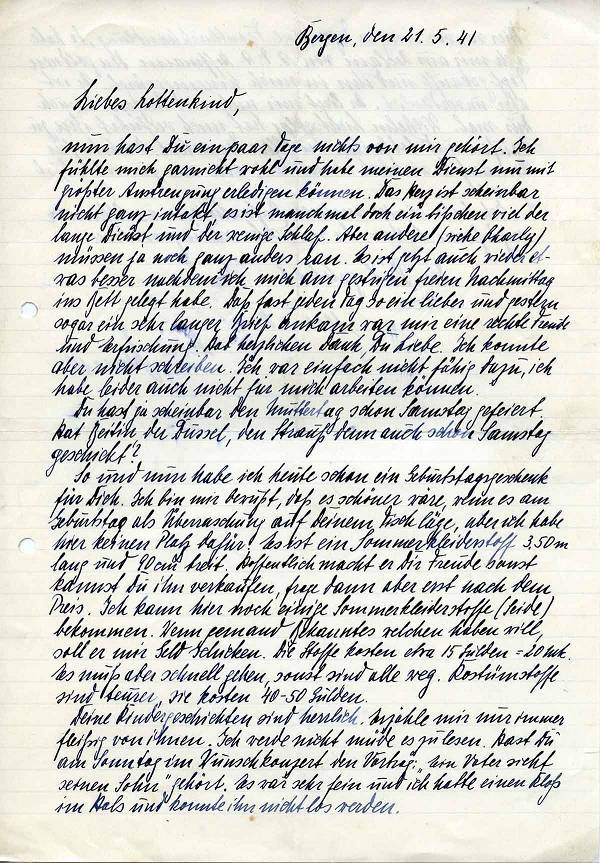 Bergen, den 21. 5. 41
Liebes Lottenkind,
nun hast Du ein paar Tage nichts von mir gehört. Ich
fühlte mich garnicht wohl und habe meinen Dienst nur mit
größter Anstrengung erledigen können. Das Herz ist scheinbar
nicht ganz intakt, es ist manchmal doch ein bißchen viel der
lange Dienst und der wenige Schlaf. Aber andere (siehe Charly)
müssen ja noch ganz anders ran. Es ist jetzt auch wieder et-
was besser nachdem ich mich am gestrigen freien Nachmittag
ins Bett gelegt habe. Daß fast jeden Tag so ein lieber und gestern
sogar ein sehr langer Brief ankam war mir eine rechte Freude
und Erfrischung. Hab herzlichen Dank, Du Liebe. Ich konnte
aber nicht schreiben. Ich war einfach nicht fähig dazu, ich
habe leider auch nicht für mich arbeiten können.
Du hast ja scheinbar den Muttertag schon Samstag gefeiert.
Hat der Dussel, den Strauß denn auch schon Samstag
geschickt?
So und nun habe ich heute schon ein Geburtstagsgeschenk
für Dich. Ich bin mir bewußt, daß es schöner wäre, wenn es am
Geburtstag als Überraschung auf Deinem Tisch läge, aber ich habe
hier keinen Platz dafür. Es ist ein Sommerkleiderstoff 3,50 m
lang und 90 cm breit. Hoffentlich macht er Dir Freude sonst
kannst Du ihn verkaufen, frage dann aber erst nach dem
Preis. Ich kann hier noch einige Sommerkleiderstoffe (Seide)
bekommen. Wenn jemand Bekanntes welchen haben will,
soll er mir Geld schicken. Die Stoffe kosten etwa 15 Gulden = 20 Mk.
Es muß aber schnell gehen, sonst sind alle weg. Kostümstoffe
sind teurer, sie kosten 40-50 Gulden.
Deine Kindergeschichten sind herrlich. Erzähle mir nur immer
fleißig von ihnen. Ich werde nicht müde es zu lesen. Hast Du
am Sonntag im Wunschkonzert den Vortrag: "Ein Vater sieht
seinen Sohn" gehört. Es war sehr fein und ich hatte einen Kloß
im Hals und konnte ihn nicht los werden.